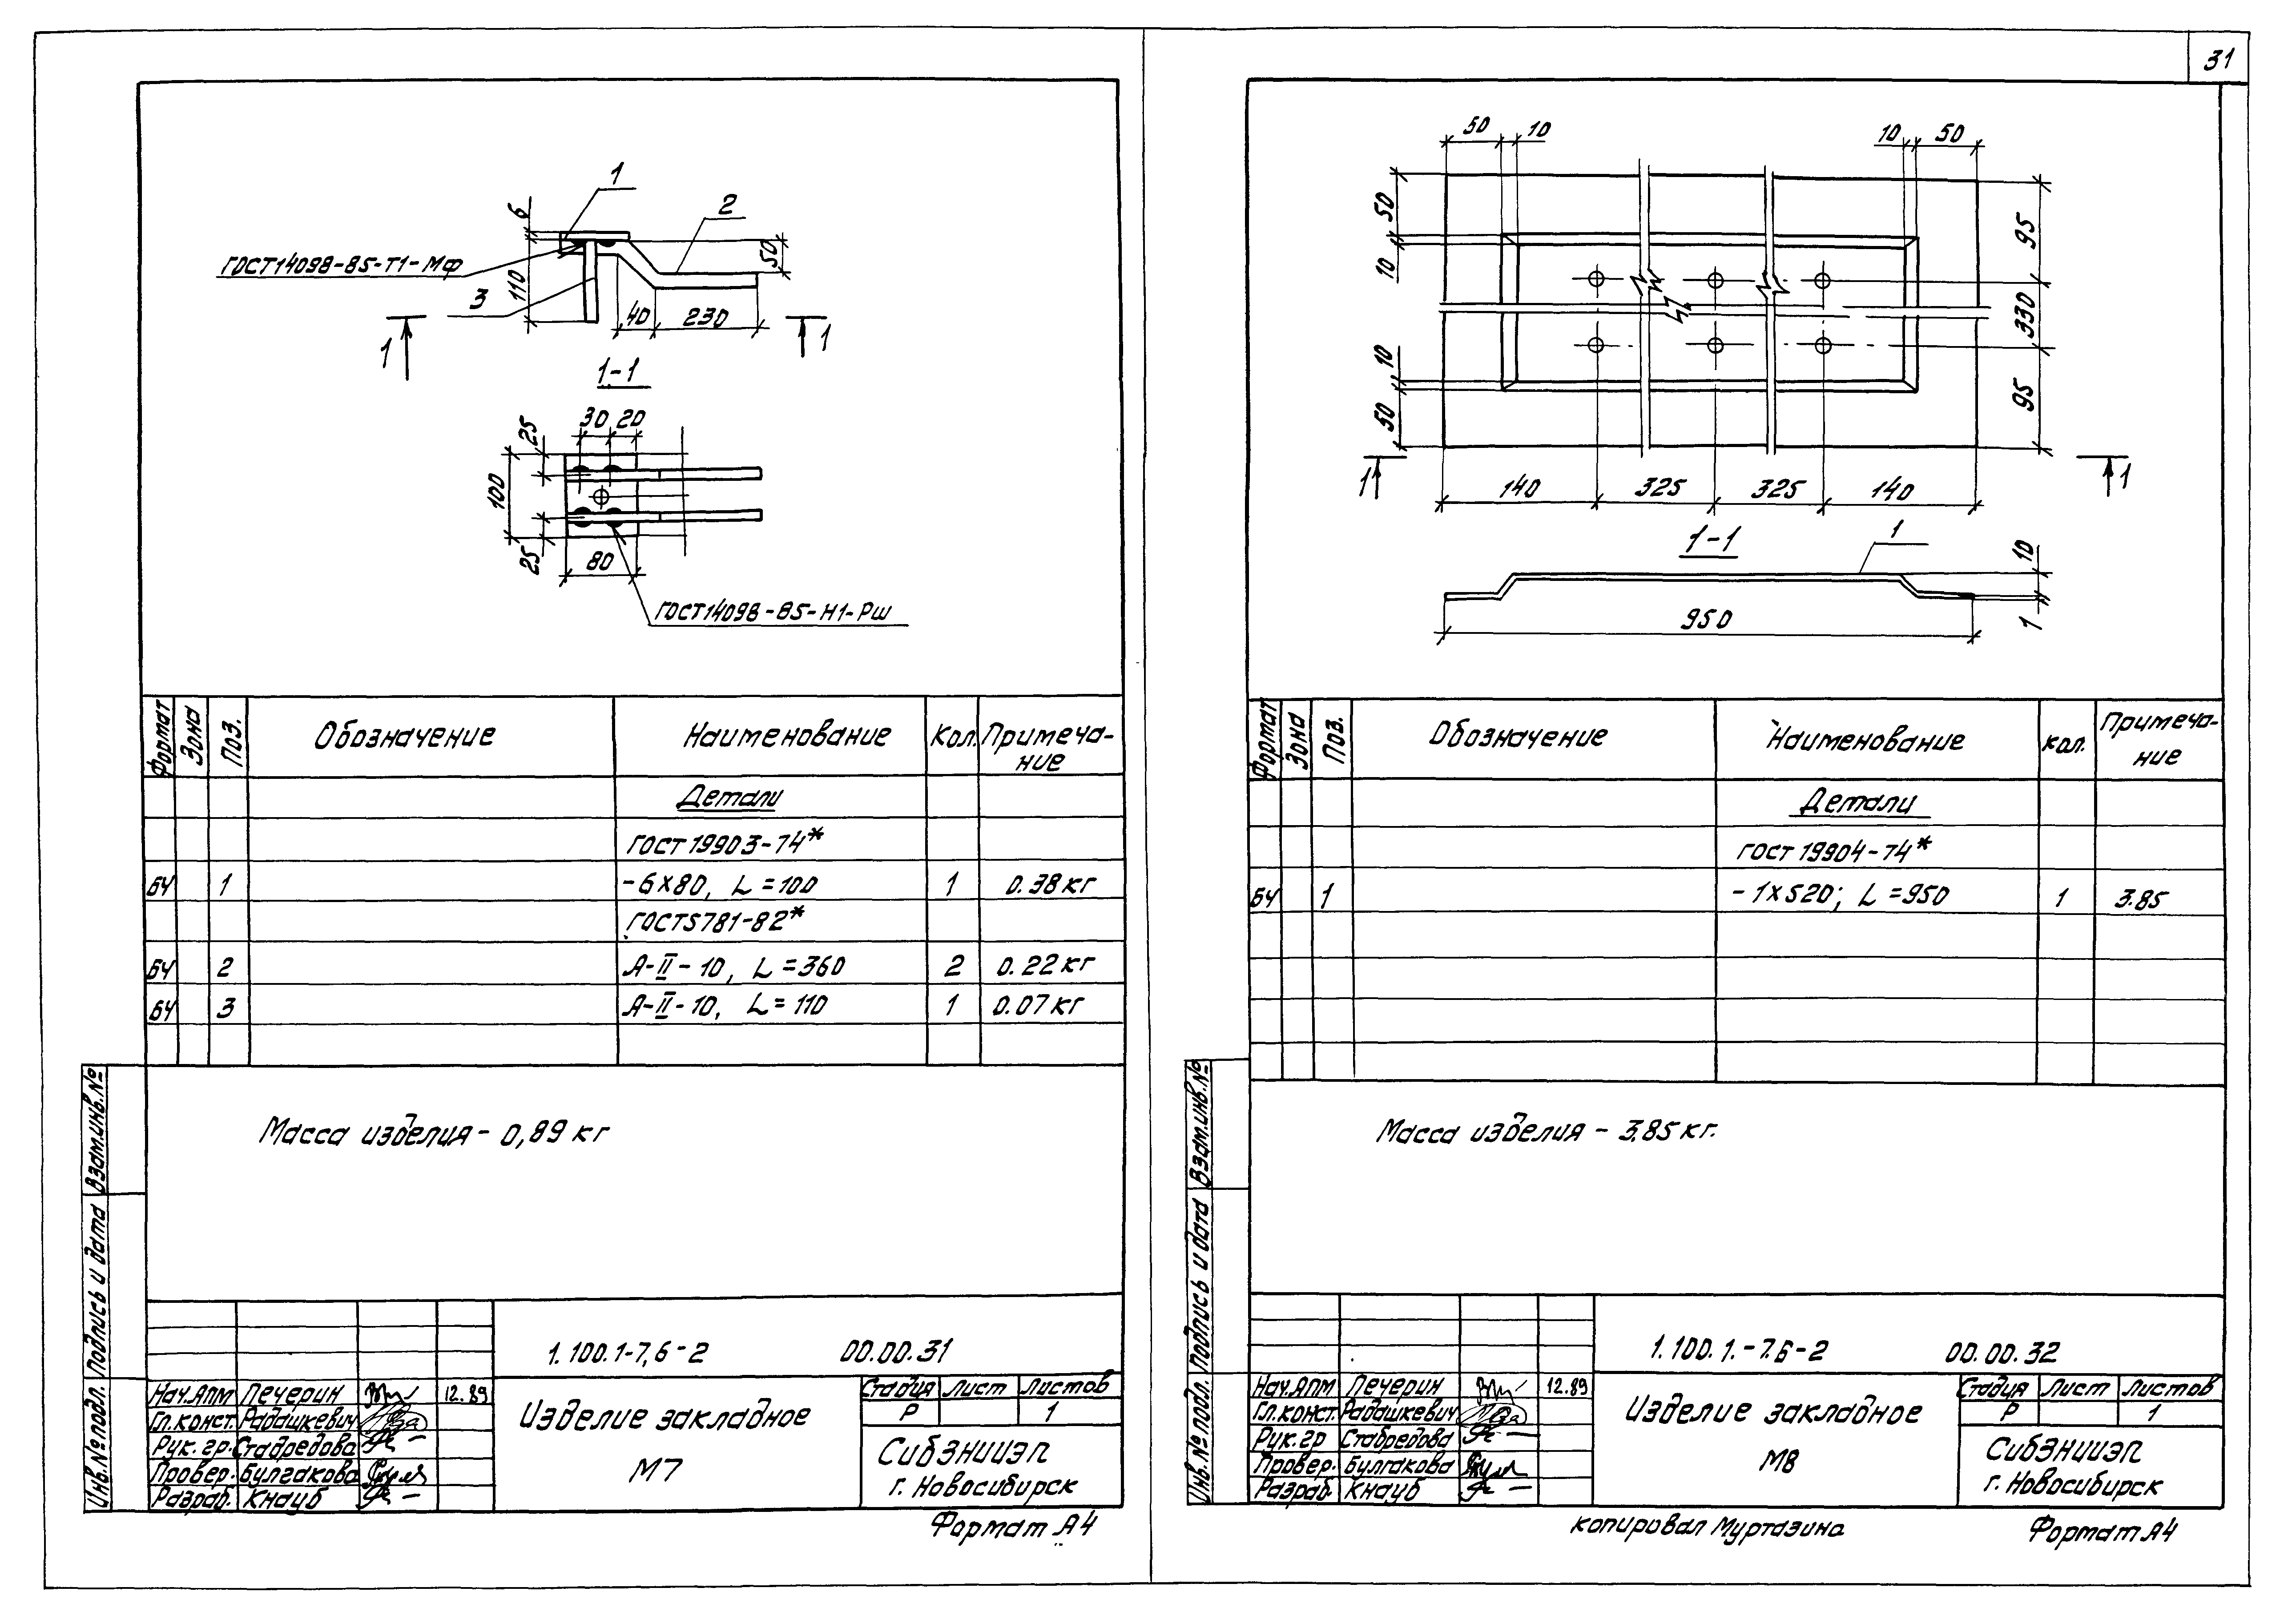 31
1
2
6
50
ГОСТ14098-85-Т1-Мф
110
3
40
230
1
1
1-1
30
20
25
100
25
80
ГОСТ14098-85-Н1-Рш
Формат
Зона
Поз.
Обозначение
Наименование
Кол.
Примеча-
ние
Детали
ГОСТ 19903-74*
БЧ 1 -6х80, L=100 1 0.38кг
ГОСТ5781-82*
БЧ 2 А-II-10, L=360 2 0.22кг
БЧ 3 А-II-10, L=110 1 0.07кг
Масса изделия - 0,89 кг
Взам.инв.№
Подпись и дата
Инв.№ подл.
1.100.1-7,6-2 00.00.31
Нач.АПМ Печерин 12.89
Гл.конст. Радашкевич
Рук.гр. Стабредова
Провер. Булгакова
Разраб. Кнауб
Изделие закладное
М7
Стадия Лист Листов
Р 1
СибЗНИИЭП
г. Новосибирск
Формат А4
50
10
10
50
50
10
10
50
95
330
95
1
1
140
325
325
140
1-1
1
10
1
950
Формат
Зона
Поз.
Обозначение
Наименование
кол.
Примеча-
ние
Детали
гост 19904-74*
БЧ 1 -1х520; L=950 1 3.85
Масса изделия - 3.85кг.
Взам.инв.№
Подпись и дата
Инв.№ подл.
1.100.1.-7.6-2 00.00.32
Нач.АПМ Печерин 12.89
Гл.конст. Радашкевич
Рук.гр Стабредова
Провер. Булгакова
Разраб. Кнауб
Изделие закладное
М8
Стадия Лист Листов
Р 1
СибЗНИИЭП
г. Новосибирск
копировал Муртазина
Формат А4